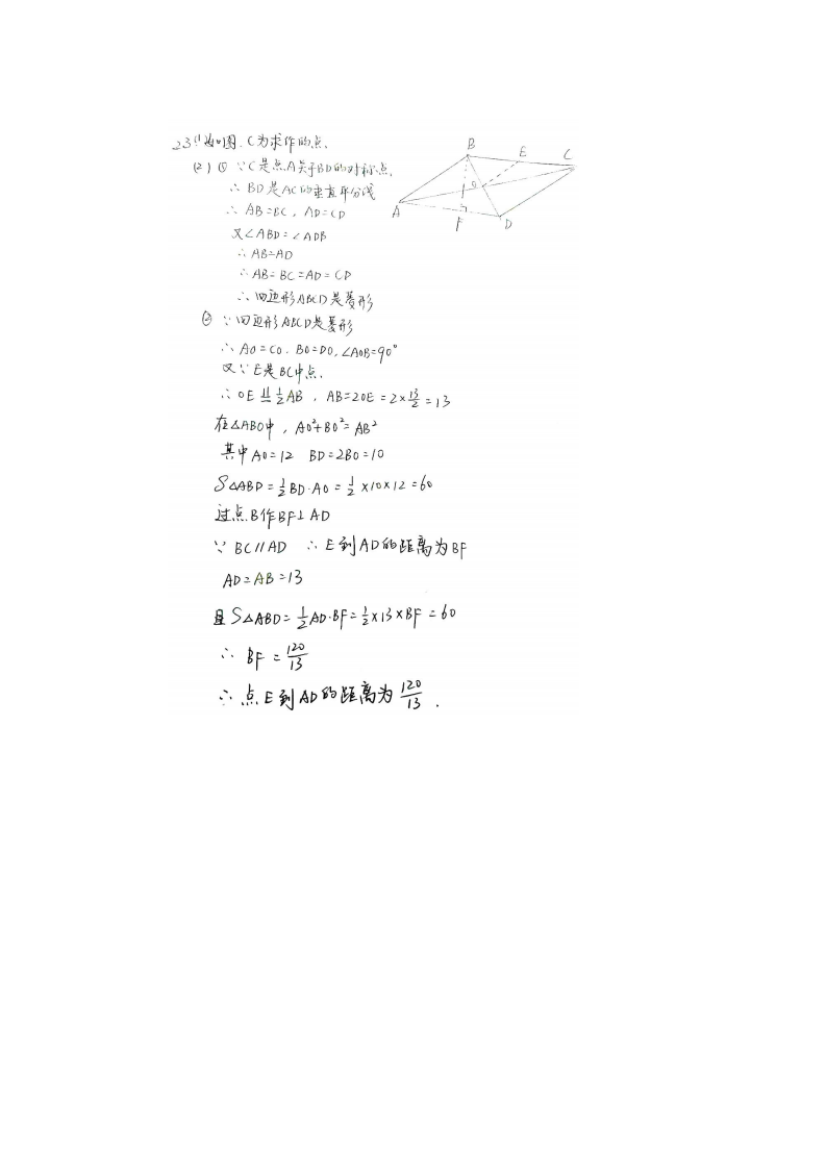 23(1)如图,C为求作的点.
(2)① ∵C是点A关于BD的对称点.
∴BD是AC的垂直平分线
∴AB=BC,AD=CD
又∠ABD=∠ADB
∴AB=AD
∴AB=BC=AD=CD
∴四边形ABCD是菱形
② ∵四边形ABCD是菱形
∴AO=CO.BO=DO,∠AOB=90°
又∵E是BC中点.
∴OE ∥= 1/2 AB,AB=2OE=2×13/2=13
在△ABO中,AO²+BO²=AB²
其中AO=12 BD=2BO=10
S△ABD=1/2 BD·AO=1/2×10×12=60
过点B作BF⊥AD
∵BC//AD ∴E到AD的距离为BF
AD=AB=13
且S△ABD=1/2 AD·BF=1/2×13×BF=60
∴BF=120/13
∴点E到AD的距离为120/13.
B
E
C
O
A
F
D